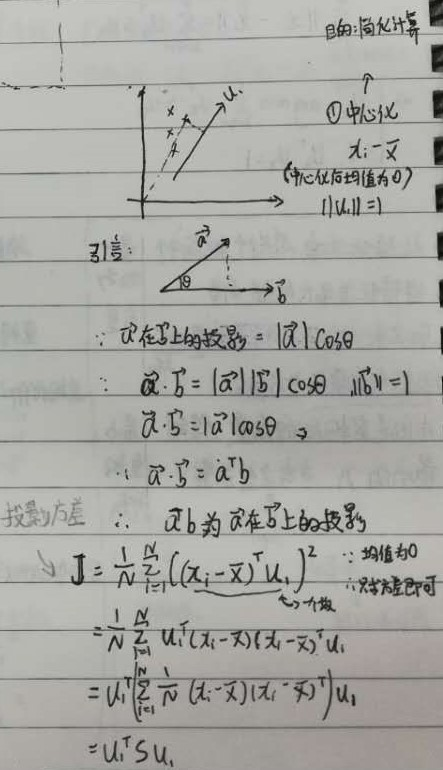 目的:简化计算
↑
① 中心化
xᵢ - x̄
(中心化后均值为0)
||u₁|| = 1
u₁
引言:
a⃗
θ
b⃗
∵ a⃗在b⃗上的投影 = |a⃗| cosθ
∵ a⃗·b⃗ = |a⃗||b⃗| cosθ , ||b⃗|| = 1
a⃗·b⃗ = |a⃗| cosθ
∵ a⃗·b⃗ = aᵀb
∴ aᵀb 为 a⃗在b⃗上的投影
投影方差
J = 1/N Σᵢ₌₁ᴺ ((xᵢ - x̄)ᵀ u₁)² ∵ 均值为0
一个数 ∴ 只求方差即可
= 1/N Σᵢ₌₁ᴺ u₁ᵀ (xᵢ - x̄)(xᵢ - x̄)ᵀ u₁
= u₁ᵀ (Σᵢ₌₁ᴺ 1/N (xᵢ - x̄)(xᵢ - x̄)ᵀ) u₁
= u₁ᵀ S u₁